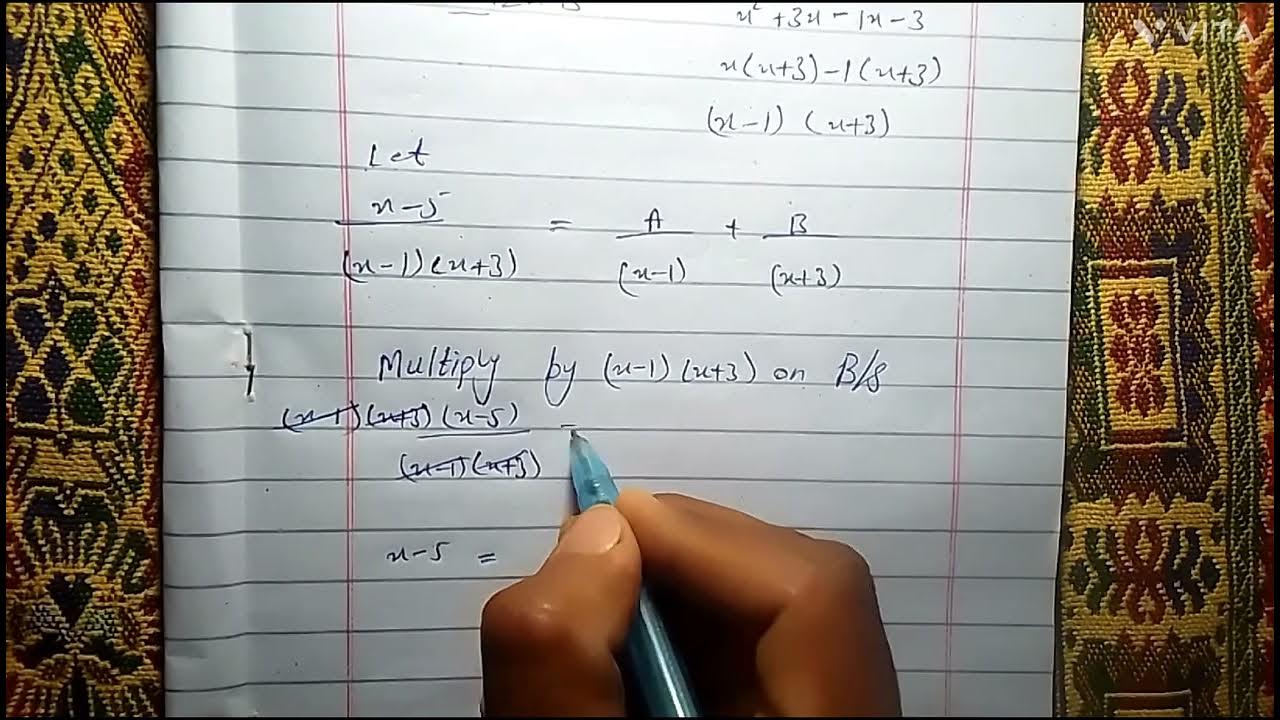 VITA
x² + 3x - 1x - 3
x(x+3) - 1(x+3)
(x-1) (x+3)
Let
x-5 / (x-1)(x+3) = A / (x-1) + B / (x+3)
Multiply by (x-1)(x+3) on B/s
(x-1)(x+3)(x-5) / (x-1)(x+3) =
x-5 =